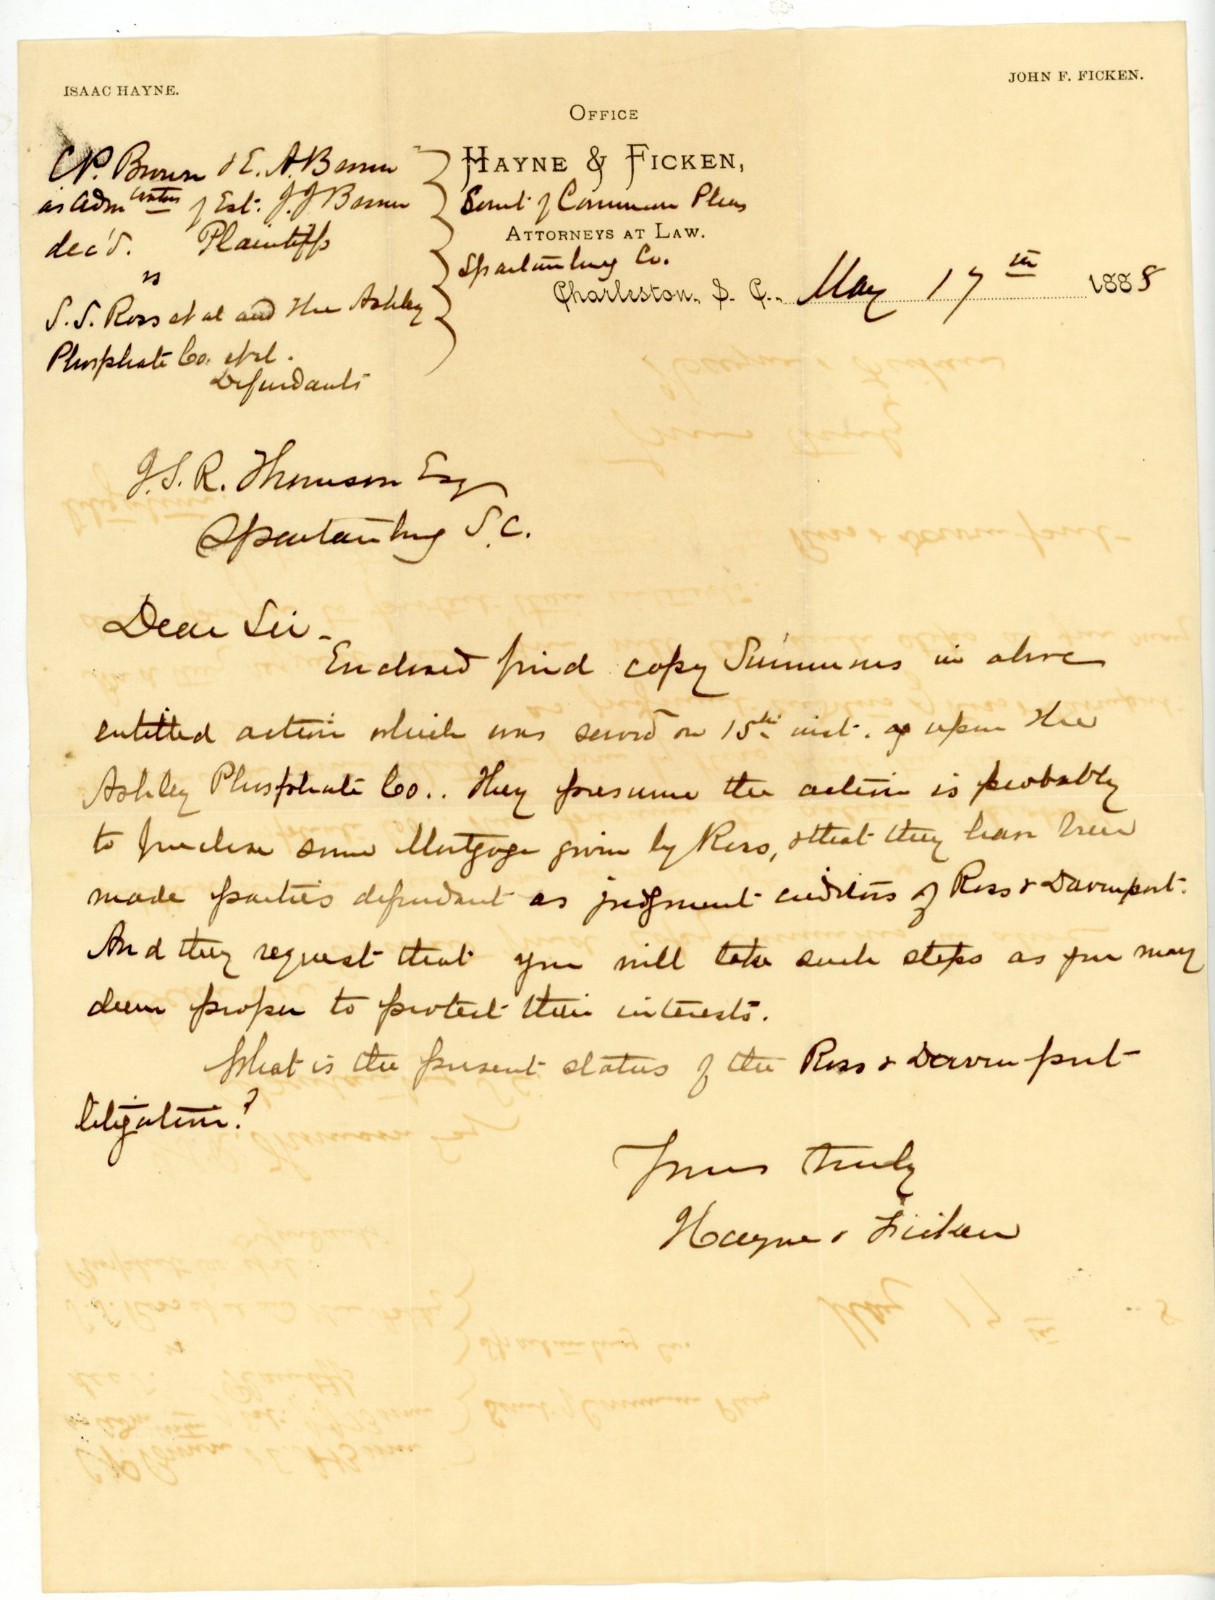 ISAAC HAYNE.
JOHN F. FICKEN.
OFFICE
HAYNE & FICKEN,
Court of Common Pleas
ATTORNEYS AT LAW.
Spartanburg Co.
Charleston, S. C., May 17th 1888
C.P. Brown & E. A. Bomar
as Admtrators of Est. J. J. Bomar
dec'd. Plaintiffs
vs
S. S. Ross et al and the Ashley
Phosphate Co. et al.
Defendants
J. S. R. Thomson Esq
Spartanburg S. C.
Dear Sir -
Enclosed find copy Summons in above
entitled action which was served on 15th inst. upon the
Ashley Phosphate Co.. They presume the action is probably
to foreclose some Mortgage given by Ross, & that they have been
made parties defendant as judgment creditors of Ross & Davenport.
And they request that you will take such steps as you may
deem proper to protect their interests.
What is the present status of the Ross & Davenport
litigation?
Yours truly
Hayne & Ficken